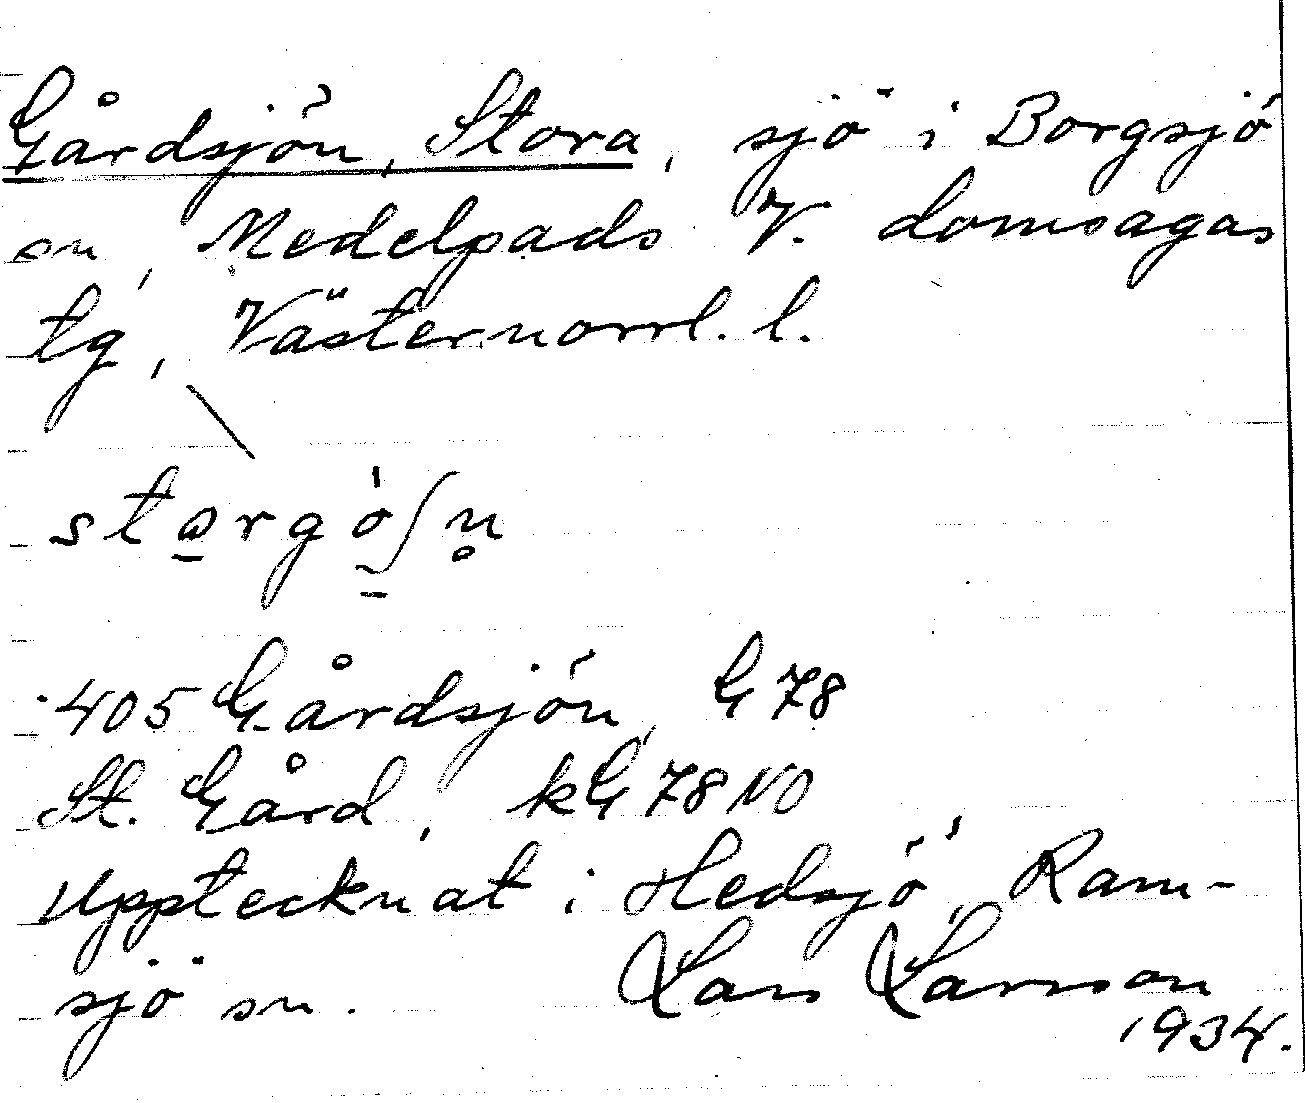 Gårdsjön, Stora, sjö i Borgsjö
sn, Medelpads V. domsagas
tg, Västernorrl. l.
405 Gårdsjön, G 78
St. Gård, kG 78 NO
Upptecknat i Hedsjö, Ram-
sjö sn. Lars Larsson
1934.